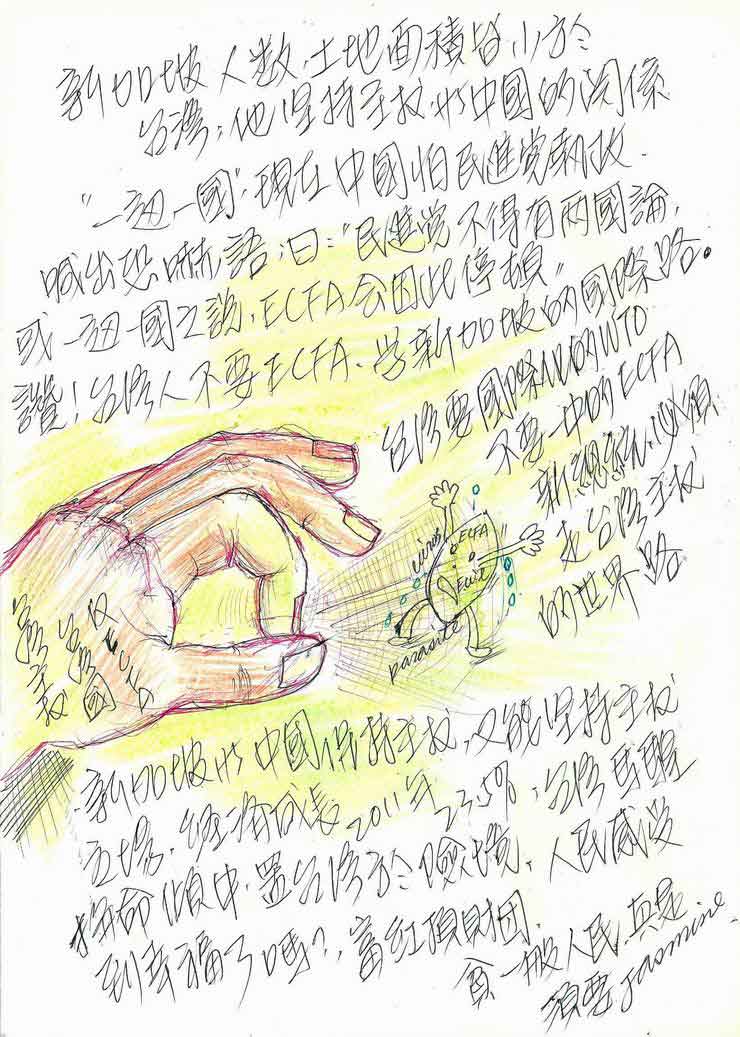 新加坡人数,土地面積皆小於
台灣,他坚持主权,非中國的関係
"一边一國",現在中國怕民進党執政.
喊出恐嚇語,曰:"民進党不得有两國論,
或一边一國之說,ECFA会因此停頓"
讚!台湾人不要ECFA.学新加坡的國際路。
台湾要國際化的WTO
不要一中的ECFA
新思維,必須
走台湾主权
的世界路
virus
ECFA
parasite
台湾主权
台湾國
反ECFA
新加坡非中國保持主权,又能坚持主权
立場,經濟成長2011年23.5%,台湾馬
拚命傾中,置台湾於險境,人民感受
到幸福了嗎?,富紅頂財团,
貧一般人民,真是
須要Jasmine